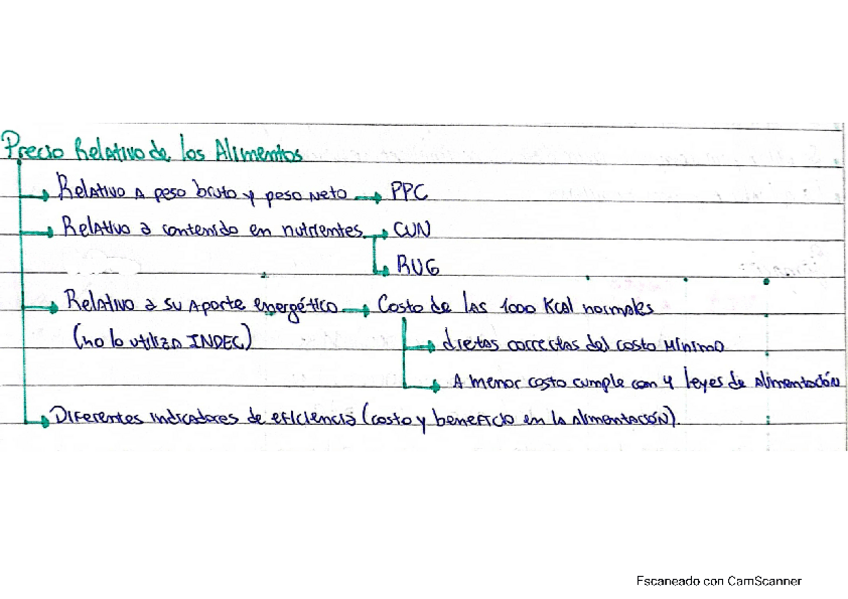 Precio Relativo de los Alimentos
Relativo a peso bruto y peso neto → PPC
Relativo a contenido en nutrientes → CUN
→ RUG
Relativo a su aporte energético → Costo de las 1000 Kcal normales
(no lo utiliza INDEC) → dietas correctas del costo mínimo
→ A menor costo cumple con 4 leyes de alimentación
Diferentes indicadores de eficiencia (costo y beneficio en la alimentación).
Escaneado con CamScanner